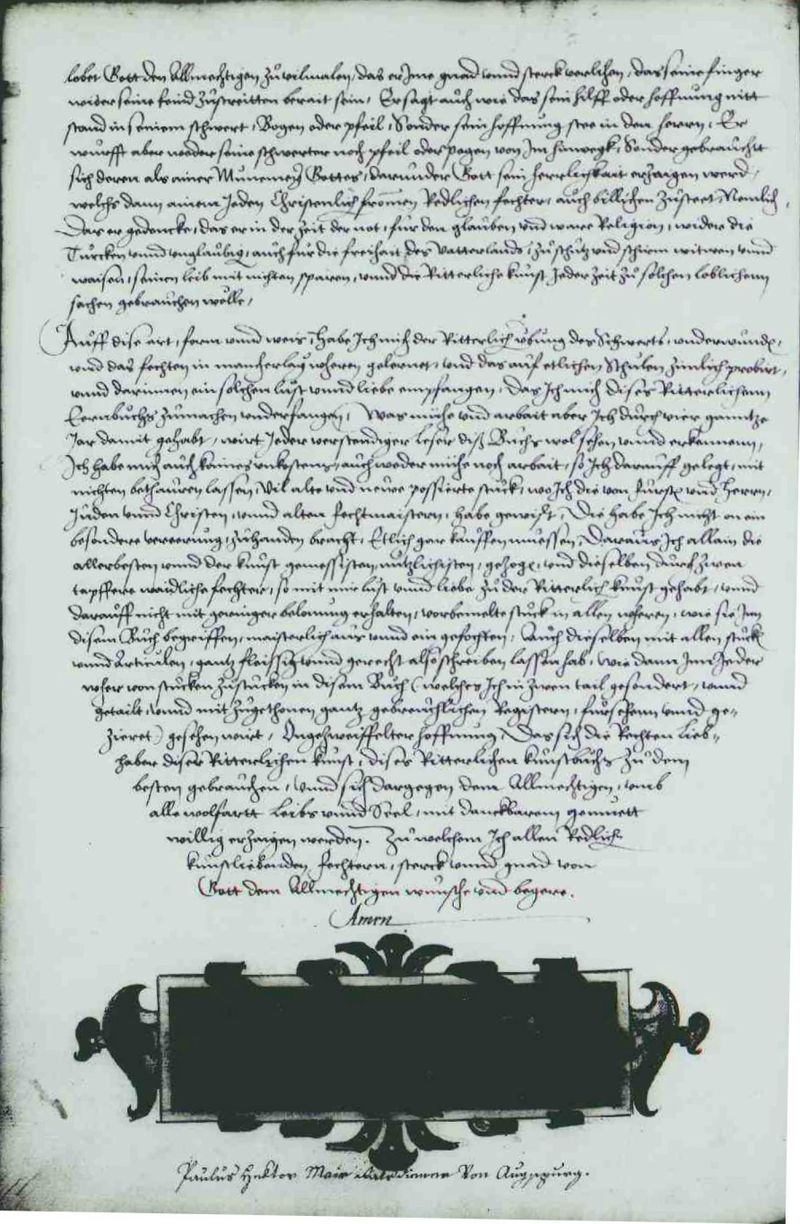 lobet Gott den Allmechtigen zů vilmalen, das er Ime gnad vnnd sterck verlihen, das seine finger
wider seine feind zůstreitten berait sein, Er sagt auch wie das sein hilff oder hoffnung nitt
stand in seinem schwert, Bogen oder pfeil, Sonder sein hoffnung stee in dem herrn, Er
würfft aber weder seine schwerter noch pfeil oder pogen von Im hinweckh, Sonder gebraucht
sich deren als ainer Gottes, darunder Gott sein herrlichkait erzaigen werd,
welchs dann ainem Jeden Christenlich frommen Redlichen fechter, auch billichen zůsteet, Nemlich,
Das er gedencke, das er in der zeit der not, für den glauben vnd ware Religion, wider die
Türcken vnnd vnglaubig, auch für die freihait des Vatterlands, zů schutz vnd schirm witwen vnnd
waisen, seinen leib mit nichten sparen, vnnd die Ritterliche kunst Jeder zeit zů solchen loblichenn
sachen gebrauchen wölle,
Auff dise art, form vnnd weis, habe Ich mich der Ritterlich übung des Schwerts, vnderwunden,
vnd das fechten in mancherlay wheren gelernet, vnd das auf etlichen Schulen zimlich probiert,
vnnd darinnen ein solchen lust vnnd liebe empfangen, Das Ich mich dises Ritterlichenn
Eernbuchs zůmachen vnderfangen, Was miehe vnd arbait aber Ich durch vier ganntze
Jar damit gehabt, wirt Jeder verstendiger leser diß Buchs wol sehen vnnd erkennenn,
Ich habe mich auch kaines vnkostens, auch weder miehe noch arbait, so Ich darauff gelegt, mit
nichten bethauren lassen, Vil alte vnd newe possierte stuck, wo Ich die von Fürsten vnd Herrn,
Juden vnnd Christen, vnnd alten fechtmaistern, habe gewist, Die hab Ich nicht on ein
besondere vereerung, zůhanden bracht, Etlich gar kauffen müessen, Daraus Ich allain die
allerbesten vnnd der kunst gemessisten, nützlichisten, gezogen, vnd dieselben durch zwen
tapffere waidliche fechter, so mit mir lust vnnd liebe zů der Ritterlich kunst gehabt, vnnd
darauff nicht mit geringer belonung erhalten, vorbemelte stuck in allen wheren, wie sie Im
disem Buch begriffen, maisterlich aus vnnd ein gefochten, Auch dieselben mit allen stuck
vnnd Articulen, gantz fleissig vnnd gerecht also schreiben lassen hab, Wie dann Inn Jeder
wher von stucken zůstucken in disem Buch (welches Ich in zwen tail gesondert, vnnd
getailt, vnnd mit zůgethonen gantz gebreuchlichen Registern, fürsehenn vnnd ge=
zieret) gesehen wirt, Vngezweiffelter hoffnung, Das sich die Rechten Lieb=
haber diser Ritterlichen kunst, dises Ritterlichen kunstbuchs zů dem
besten gebrauchen, vnnd sich dargegen dem Allmechtigen, vmb
alle wolfartt Leibs vnnd Seel, mit danckbarem gemuett
willig erzaigen werden. Zů welchem Ich allen Redlich
kunstliebenden fechtern, sterck vnnd gnad von
Gott dem Allmechtigen wünsche vnd begere.
Amen
Paulus Hektor Mair Von Augspurg.